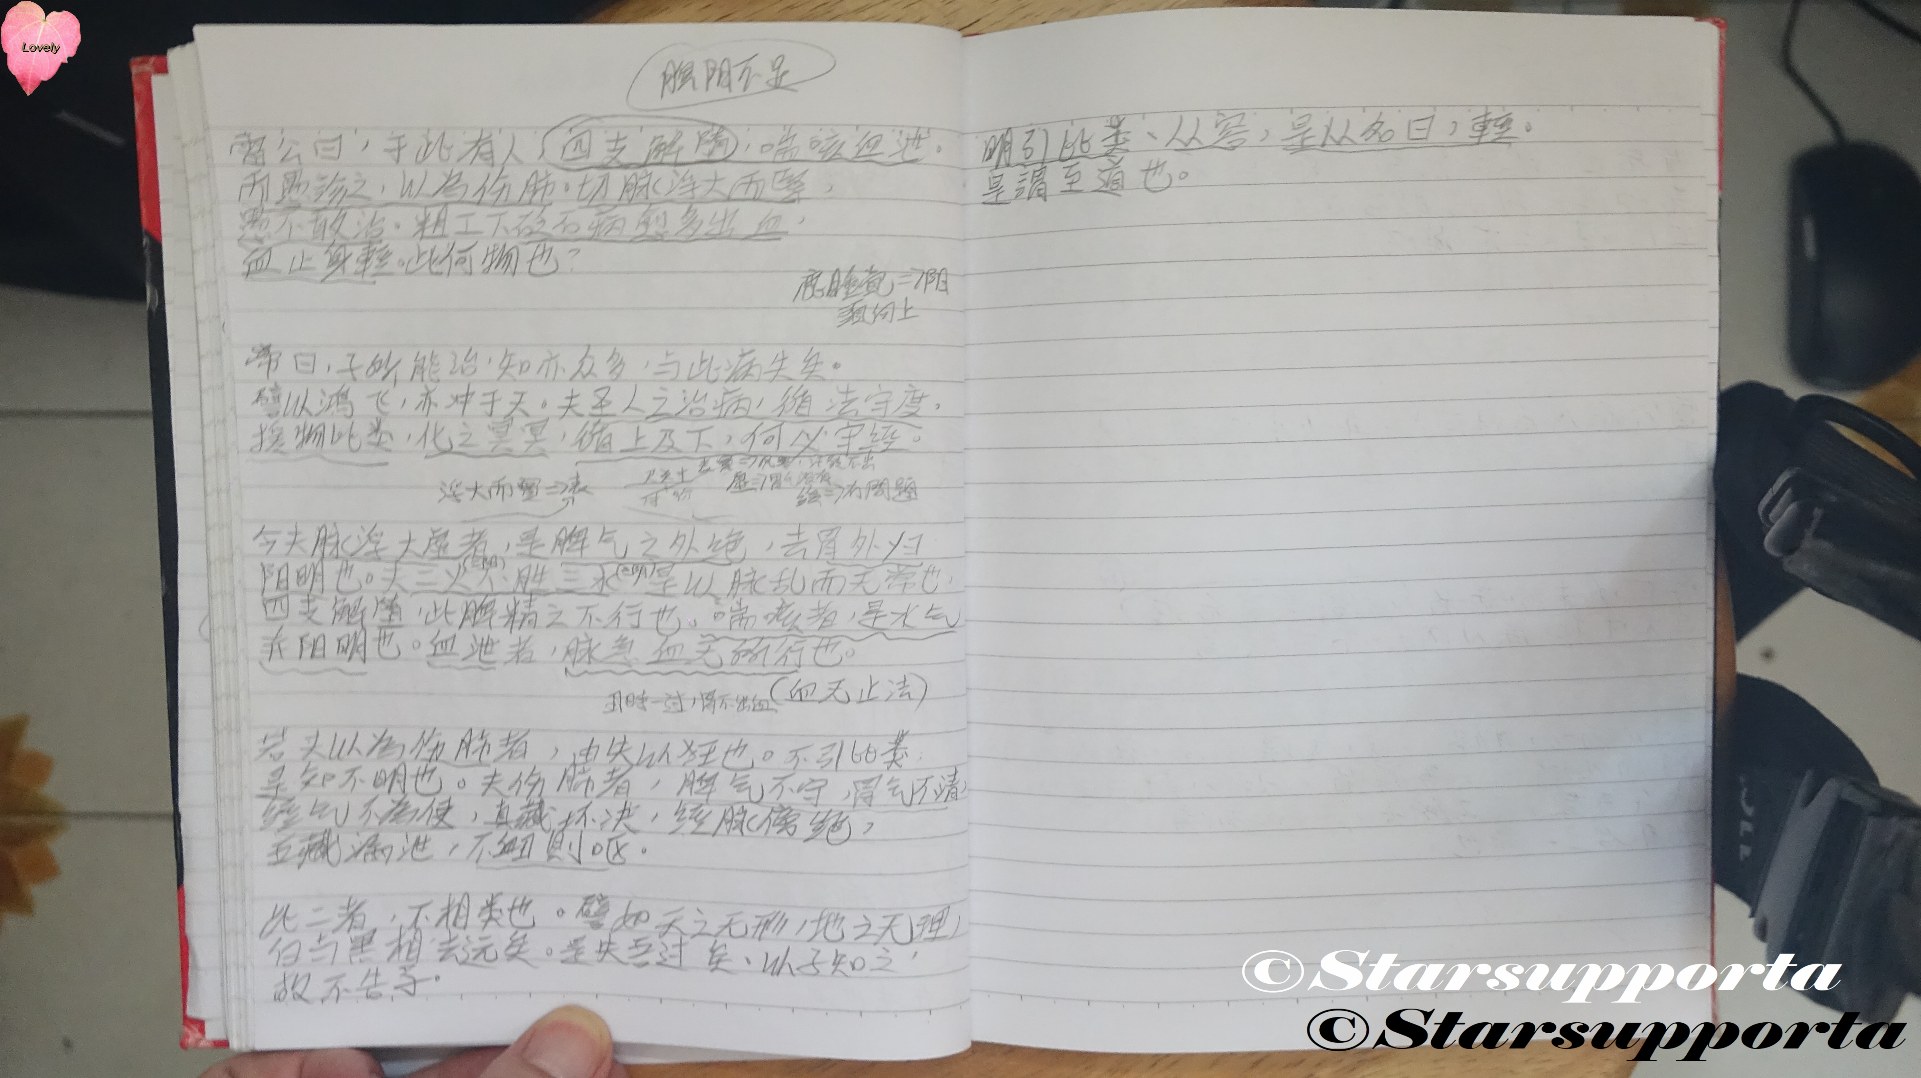 Lovely
脾阳不足
雷公曰，于此有人，四支解墮，喘咳血泄，
而愚诊之，以為伤肺。切脉浮大而緊，
愚不敢治。粗工下砭石病愈多出血，
血止身輕。此何物也？
向上
帝曰，子所能治，知亦众多，与此病失矣。
譬以鸿飞，亦冲于天。夫圣人之治病，循法守度，
援物比类，化之冥冥，循上及下，何必守经。
浮大而
有問題
今夫脉浮大虛者，是脾气之外绝，去胃外归
阳明也。夫二火不胜三水，是以脉乱而无常也，
四支解墮，此脾精之不行也。喘咳者，是水气
并阳明也。血泄者，脉急血无所行也。
(血无止法)
若夫以為伤肺者，由失以狂也。不引比类，
是知不明也。夫伤肺者，脾气不守，胃气不清，
经气不為使，真藏坏决，经脉傍绝，
五藏漏泄，不衄則呕。
此二者，不相类也。譬如天之无形，地之无理，
白与黑相去远矣。是失吾过矣、以子知之，
故不告子。
明引比类、从容，是以名曰，輕。
是謂至道也。
©Starsupporta
©Starsupporta